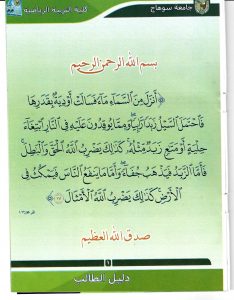 جامعة سوهاج
كلية التربية الرياضية
بسم الله الرحمن الرحيم
﴿أَنزَلَ مِنَ السَّمَاءِ مَاءً فَسَالَتْ أَوْدِيَةٌ بِقَدَرِهَا
فَاحْتَمَلَ السَّيْلُ زَبَدًا رَّابِيًا وَمِمَّا يُوقِدُونَ عَلَيْهِ فِي النَّارِ ابْتِغَاءَ
حِلْيَةٍ أَوْ مَتَاعٍ زَبَدٌ مِّثْلُهُ كَذَلِكَ يَضْرِبُ اللَّهُ الْحَقَّ وَالْبَاطِلَ
فَأَمَّا الزَّبَدُ فَيَذْهَبُ جُفَاءً وَأَمَّا مَا يَنفَعُ النَّاسَ فَيَمْكُثُ فِي
الْأَرْضِ كَذَلِكَ يَضْرِبُ اللَّهُ الْأَمْثَالَ ﴿١٧﴾
صدق الله العظيم
دليل الطالب